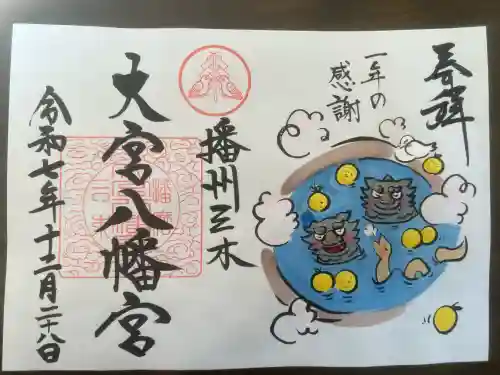 奉拝
一年の
感謝
播州三木
大宮八幡宮
令和七年十二月二十八日